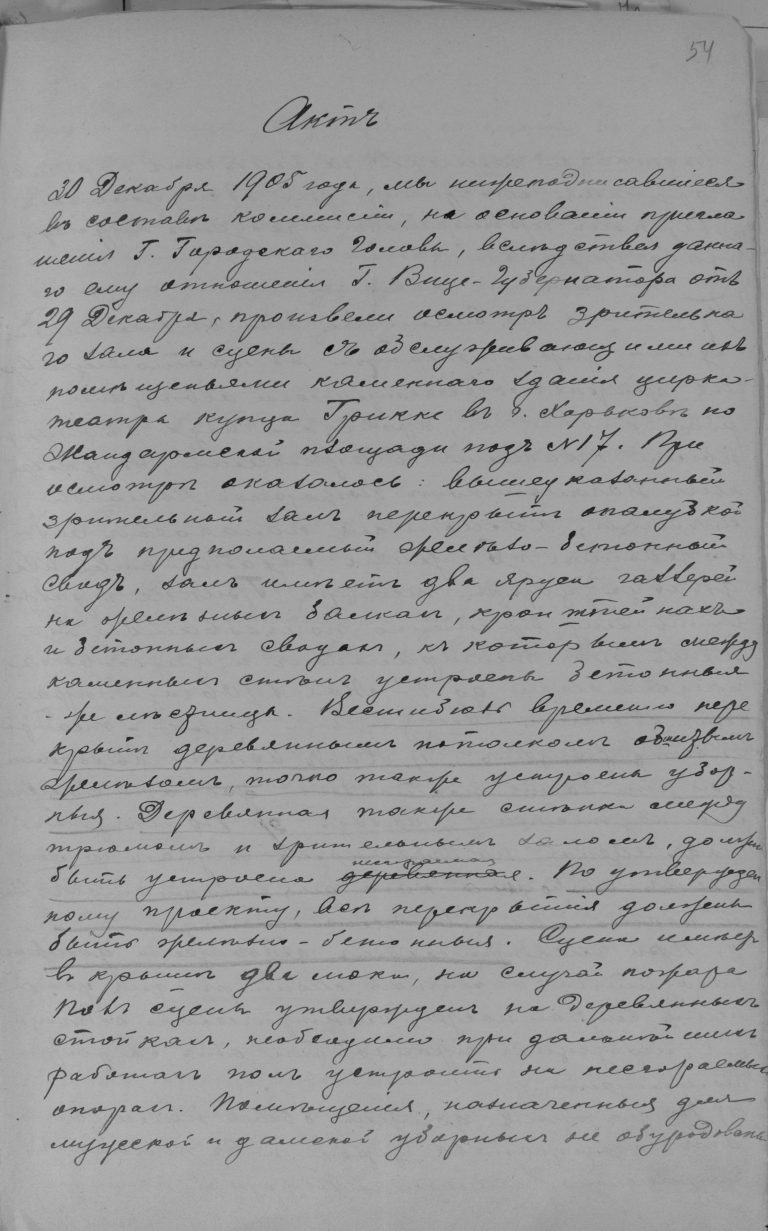 54
Актъ
30 Декабря 1905 года, мы нижеподписавшіеся
въ составѣ коммисіи, на основаніи пригла
шенія Г. Городскаго Головы, вслѣдствіе данна-
го ему отношенія Г. Вице-Губернатора отъ
29 Декабря, произвели осмотръ зрительна
го зала и сцены съ обслуживающими ихъ
помѣщеньями каменнаго зданія цирка-
театра купца Грикке въ г. Харьковѣ по
Жандармской площади подъ №17. При
осмотрѣ оказалось: вышеуказанный
зрительный залъ перекрытъ опалубкой
подъ предполагаемый желѣзо-бетонный
сводъ, залъ имѣетъ два яруса галлерей
на желѣзныхъ балкахъ, кронштейнахъ
и бетонныхъ сводахъ, къ которымъ между
каменныхъ стѣнъ устроены бетонныя
-же лѣстницы. Вестибюль временно пере
крытъ деревяннымъ потолкомъ обшитымъ
желѣзомъ, точно также устроены убор-
ныя. Деревянная также стѣнка между
трюмомъ и зрительнымъ заломъ, должна
быть устроена несгораемая деревянная. По утвержден
ному проекту, всѣ перекрытія должны
быть желѣзно-бетонныя. Сцена имѣетъ
въ крышѣ два люка, на случай пожара
Полъ сцены утвержденъ на деревянныхъ
стойкахъ, необходимо при дальнѣйшихъ
работахъ полъ устроить на несгораемых
опорахъ. Помѣщенія, назначенныя для
мужской и дамской уборныхъ не оборудованы